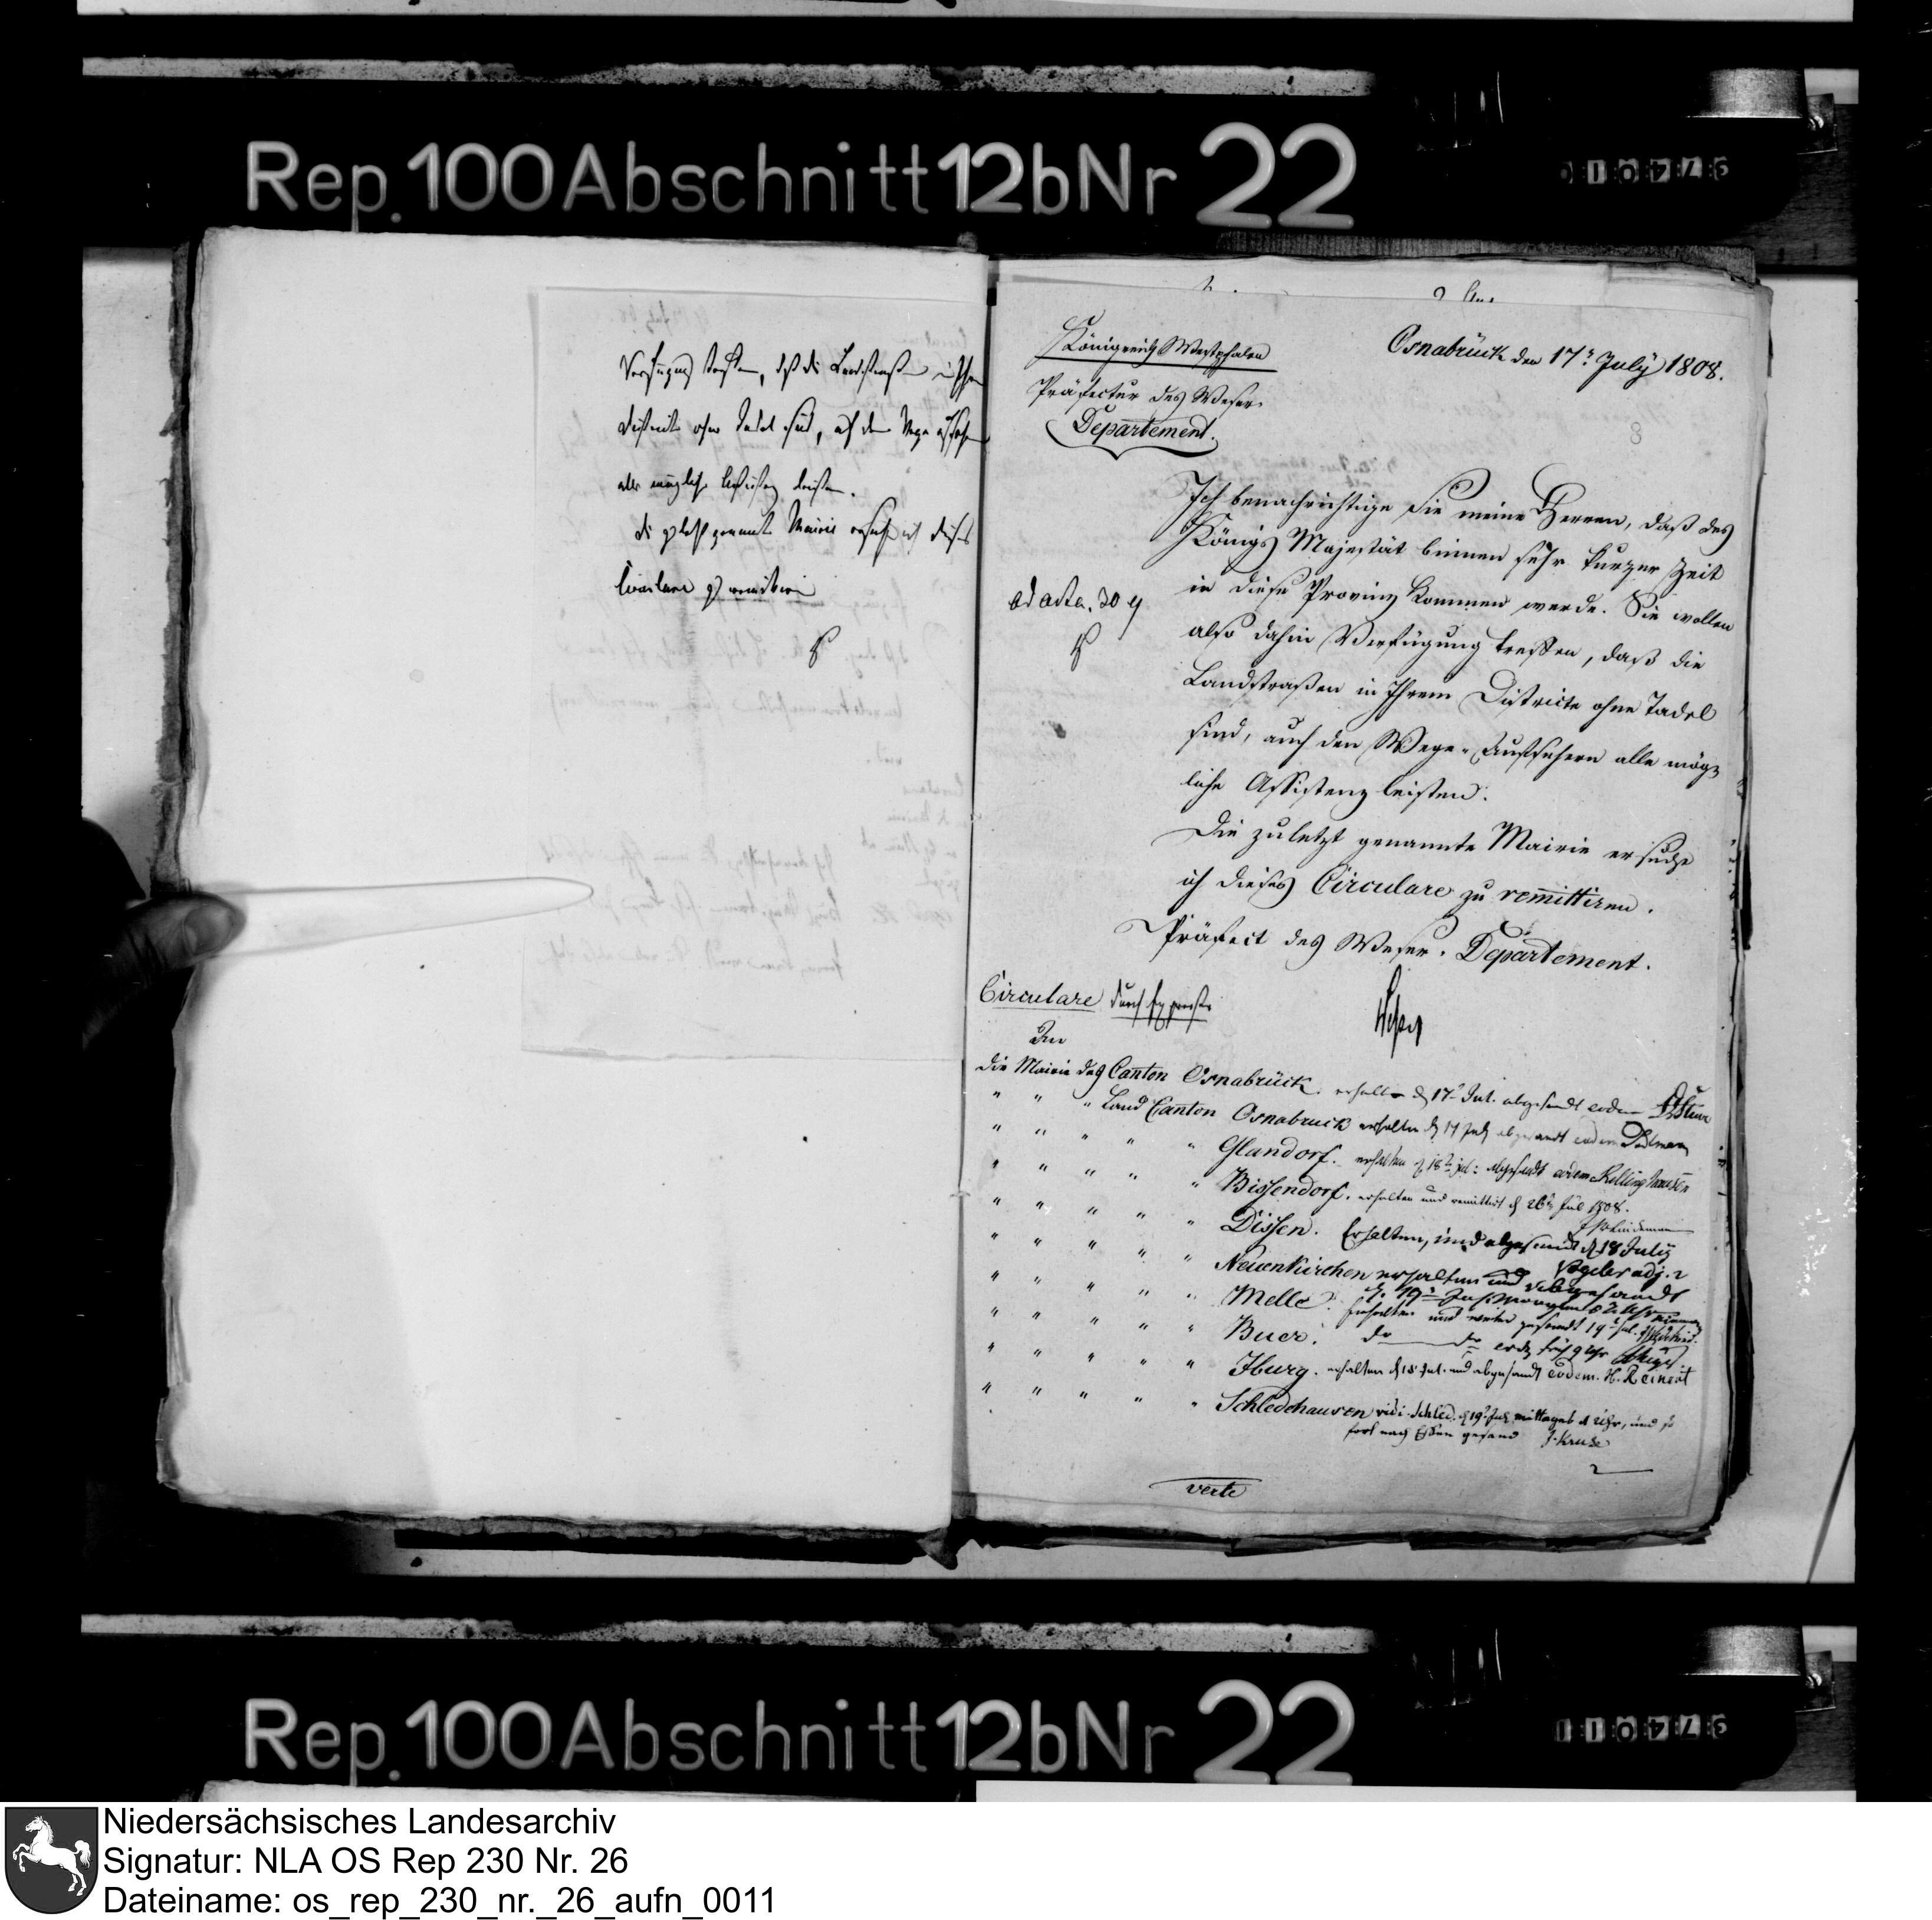 Rep. 100 Abschnitt 12b Nr 22
Verfügung treffen, daß die Landstraßen in Ihrem
Districte ohne Tadel sind, auch den Wege Aufsehern
alle mögliche leisten.
die zuletzt genannte Mairie ersuche ich dieses
Circulare zu remittiren
Königreich Westphalen
Präfectur des Weser-
Departement.
Osnabrück den 17t July 1808.
8
Ich benachrichtige Sie meine Herren, daß des
Königs Majestät binnen sehr kurzer Zeit
in diese Provinz kommen werde. Sie wollen
also dahin Verfügung treffen, daß die
Landstraßen in Ihrem Districte ohne Tadel
sind, auch den Wege-Aufsehern alle mög-
liche Assistenz leisten.
Die zuletzt genannte Mairie ersuche
ich dieses Circulare zu remittiren.
Präfect des Weser-Departement.
ad acta.
Circulare durch Expresse
An
die Mairie des Canton Osnabrück. erhalten d 17t Jul. abgesandt eodem Stüve
" " " Land Canton Osnabruck erhalten d 17 July abgesandt eodem
" " " " " Glandorf. erhalten d 18t Jul: abgesandt eodem Kellinghausen
" " " " " Bissendorf. erhalten und remittirt d 26t Jul 1808.
Lindemann
" " " " " Dissen. Erhalten, und abgesandt d 18 July
Vogeler adj.
" " " " " Neuenkirchen erhalten und abgesandt
d. 19t July Morgens 8 Uhr
" " " " " Melle. Erhalten und weiter gesandt 19t Jul.
" " " " " Buer. do do eod früh 9 Uhr
" " " " " Iburg. erhalten d 18 Jul. und abgesandt eodem. H. Reinert
" " " " " Schledehausen vidi. Schled. d 19t July mittages 1 Uhr, und so
fort nach Essen gesand J. Kruse
verte
Rep. 100 Abschnitt 12b Nr 22
Niedersächsisches Landesarchiv
Signatur: NLA OS Rep 230 Nr. 26
Dateiname: os_rep_230_nr._26_aufn_0011